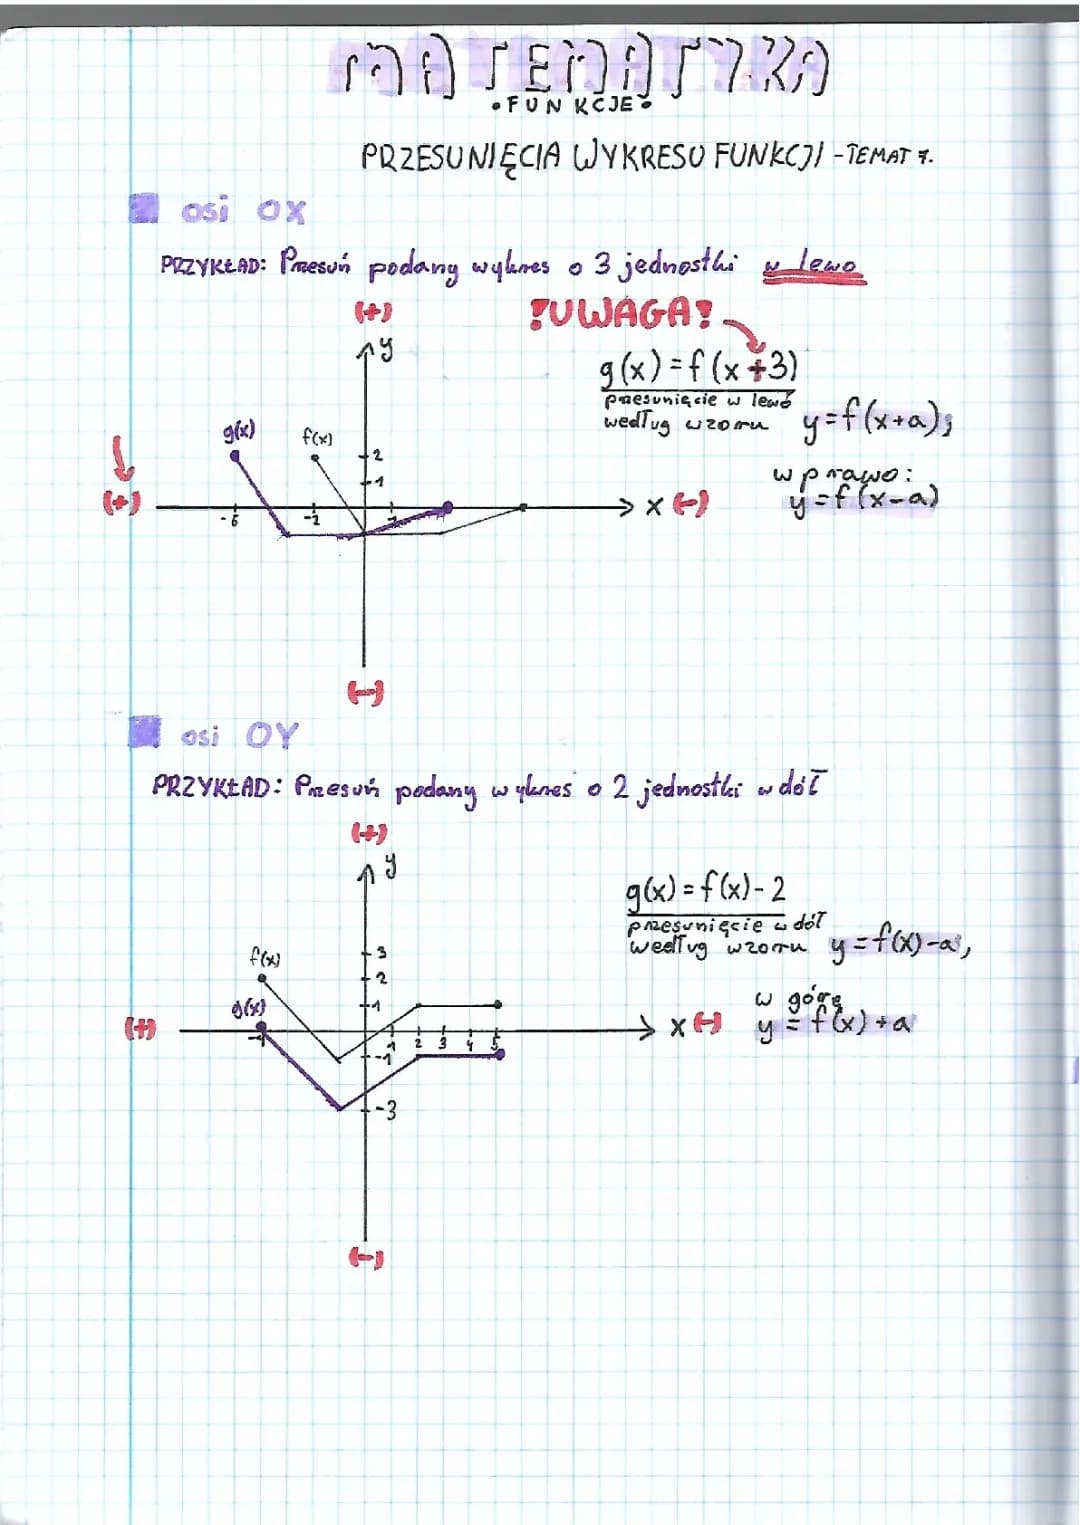 MATEMATYKA
• FUNKCJE •
PRZESUNIĘCIA WYKRESU FUNKCJI - TEMAT 7.
osi OX
PRZYKŁAD: Przesuń podany wykres o 3 jednostki w lewo
(+)
!UWAGA!
y
g(x) = f(x+3)
przesunięcie w lewo
według wzoru y=f(x+a);
g(x)
f(x)
2
1
w prawo:
y=f(x-a)
(+)
-5
-2
1
x (-)
(-)
osi OY
PRZYKŁAD: Przesuń podany wykres o 2 jednostki w dół
(+)
y
g(x) = f(x) - 2
przesunięcie w dół
według wzoru y=f(x)-a;
f(x)
3
2
g(x)
1
w górę
y = f(x) + a
(+)
-4
1 2 3 4 5
x (-)
-1
-3
(-)